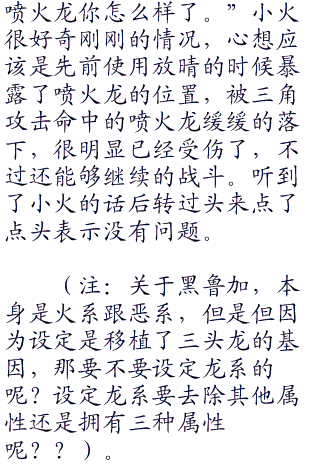 喷火龙你怎么样了。” 小火
很好奇刚刚的情况，心想应
该是先前使用放晴的时候暴
露了喷火龙的位置，被三角
攻击命中的喷火龙缓缓的落
下，很明显已经受伤了，不
过还能够继续的战斗。听到
了小火的话后转过头来点了
点头表示没有问题。
（注：关于黑鲁加，本
身是火系跟恶系，但是但因
为设定是移植了三头龙的基
因，那要不要设定龙系的
呢？设定龙系要去除其他属
性还是拥有三种属性
呢？？）。